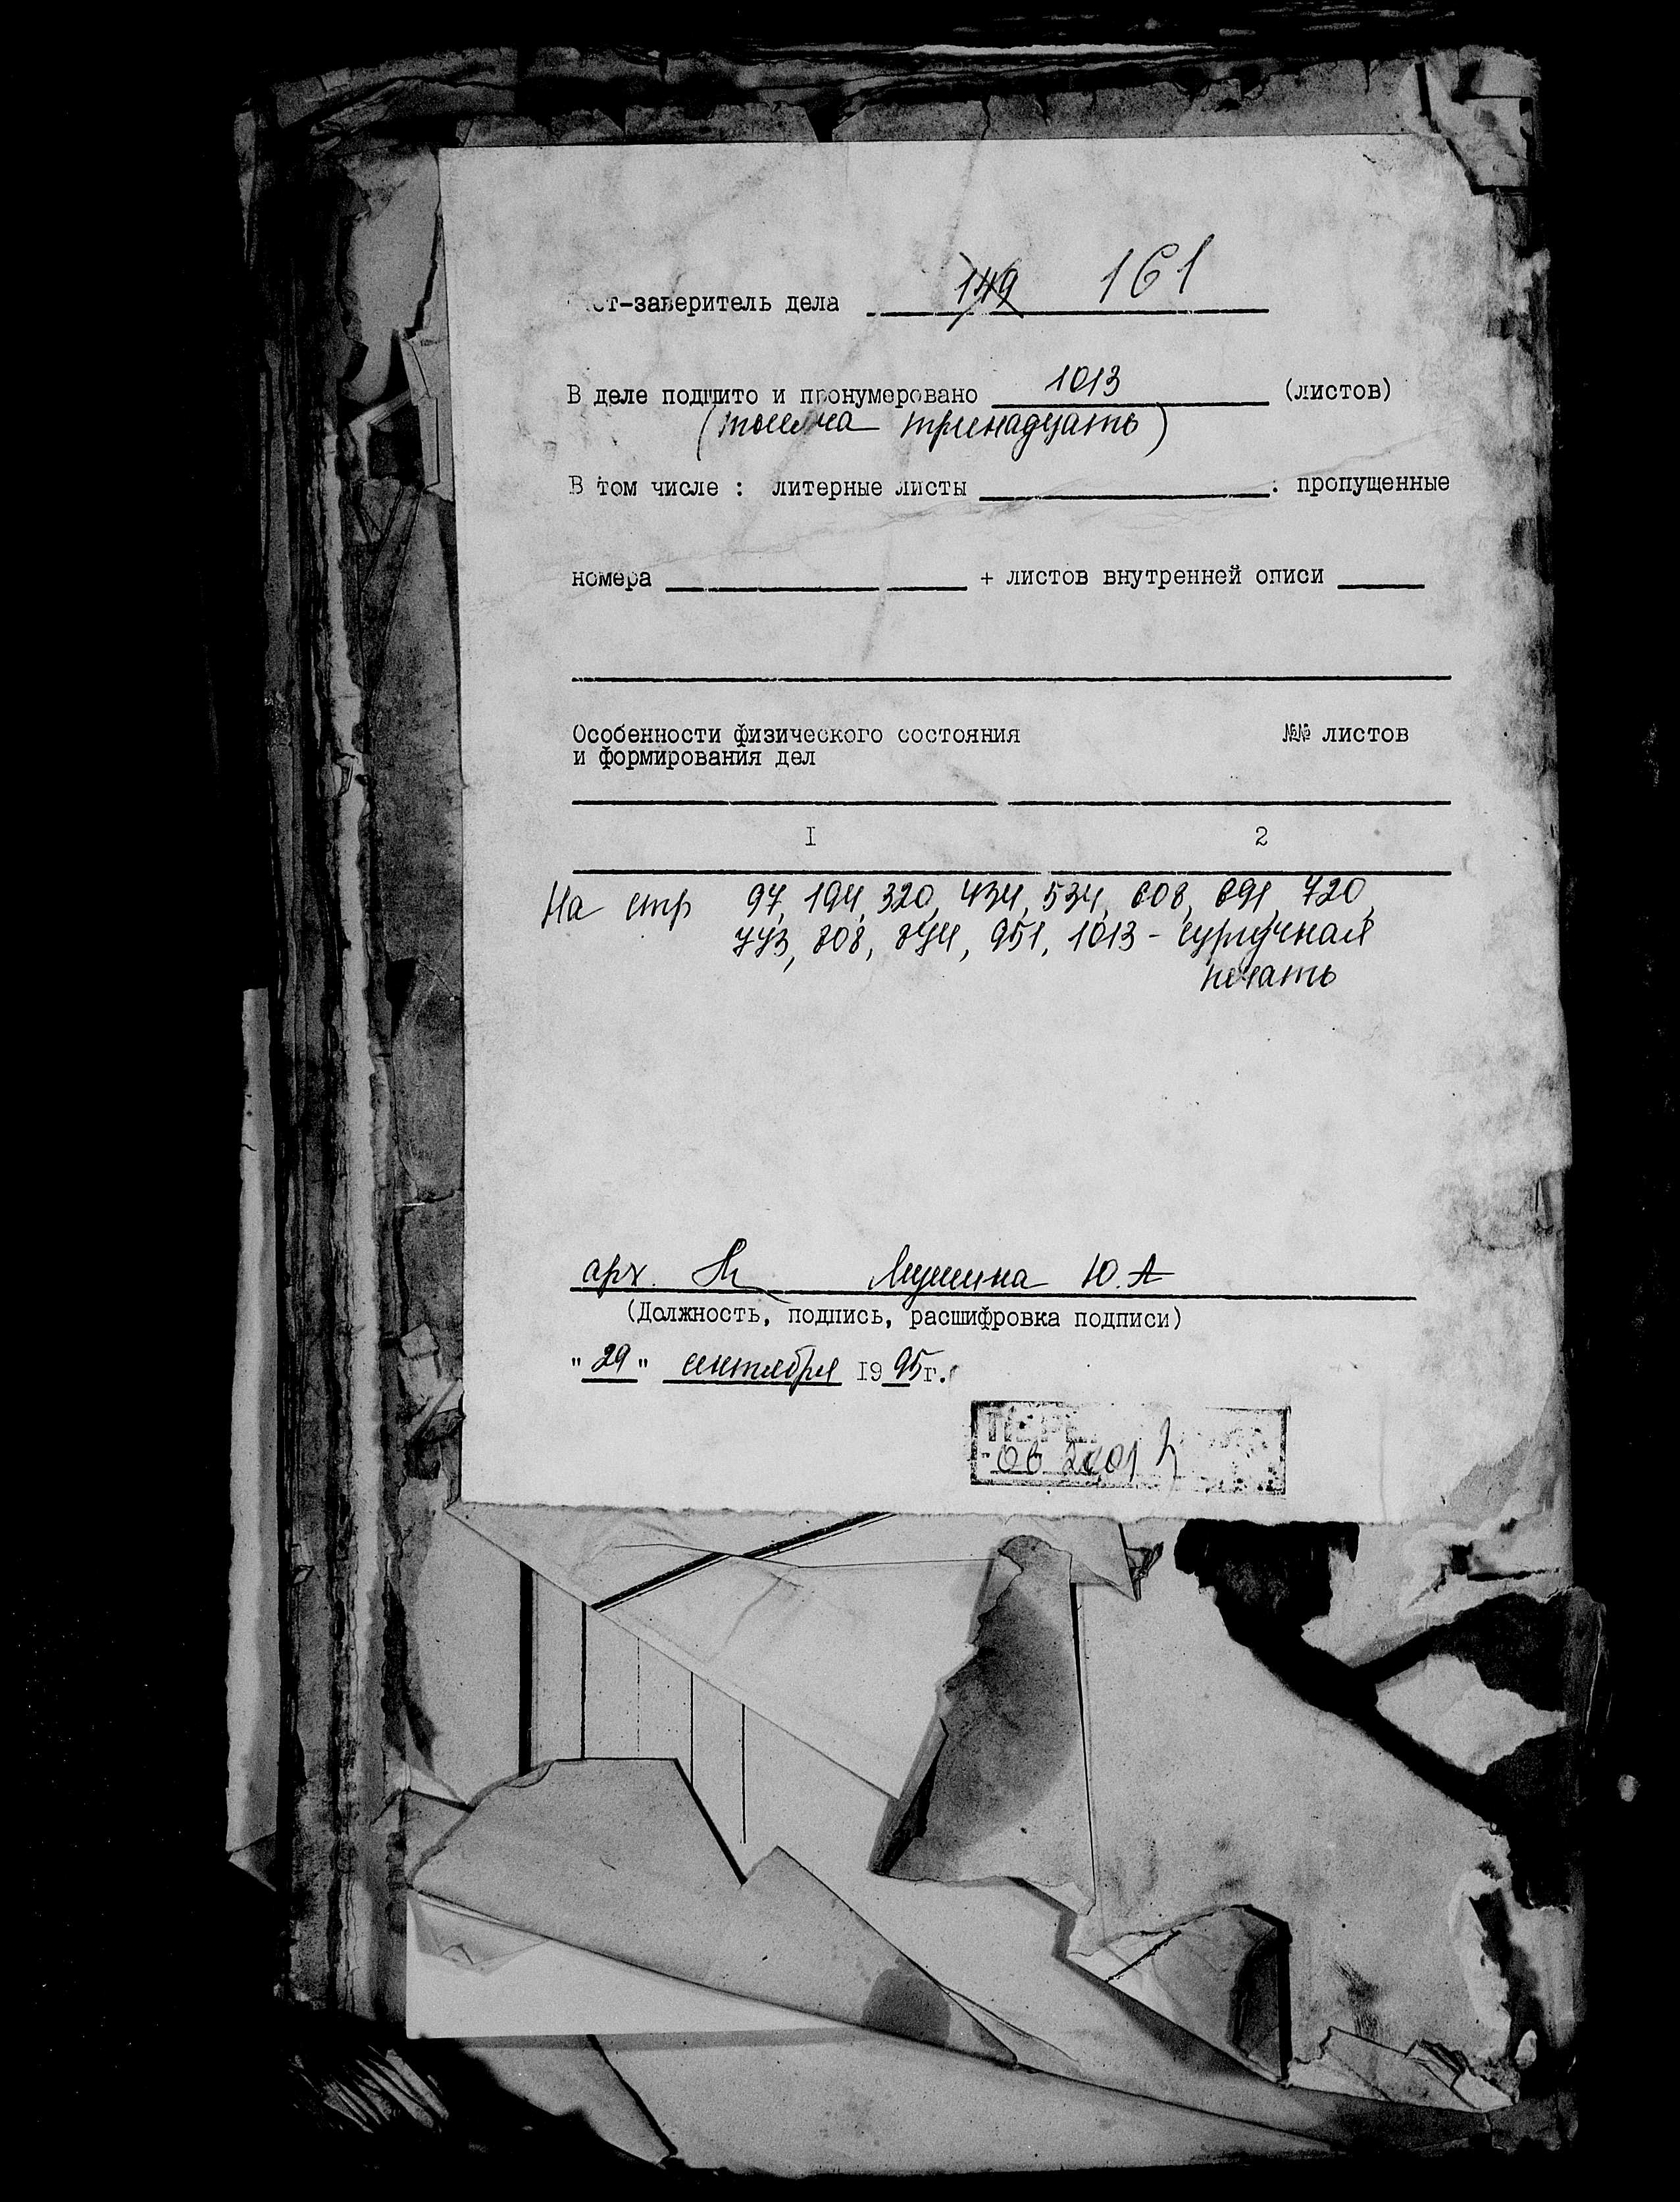 ст-заверитель дела 149 161
В деле подшито и пронумеровано 1013 (листов)
(тысяча тринадцать)
В том числе : литерные листы ____ . пропущенные
номера ____ + листов внутренней описи ____
Особенности физического состояния №№ листов
и формирования дел
I 2
На стр 97, 194, 320, 434, 534, 608, 691, 720,
773, 808, 874, 951, 1013 - сургучная
печать
арх. Ю.А
(Должность, подпись, расшифровка подписи)
"29" сентября 1995г.